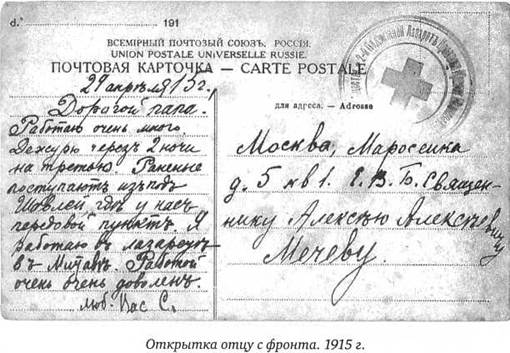 d. 191
ВСЕМІРНЫЙ ПОЧТОВЫЙ СОЮЗЪ. РОССІЯ.
UNION POSTALE UNIVERSELLE RUSSIE.
ПОЧТОВАЯ КАРТОЧКА — CARTE POSTALE
29 апрѣля 15 г.
Дорогой папа.
Работаю очень много.
Дежурю черезъ 2 ночи
на третью. Раненые
поступаютъ изъ подъ
Шавлей гдѣ у насъ
передовой пунктъ. Я
работаю въ лазаретѣ
въ Митавѣ. Работой
очень очень доволенъ.
люб. Вас С.
для адреса. — Adresse
Москва, Маросейка
д. 5 кв 1. Е. В. Б. Священ-
нику Алексѣю Алексѣевичу
Мечеву.
Открытка отцу с фронта. 1915 г.